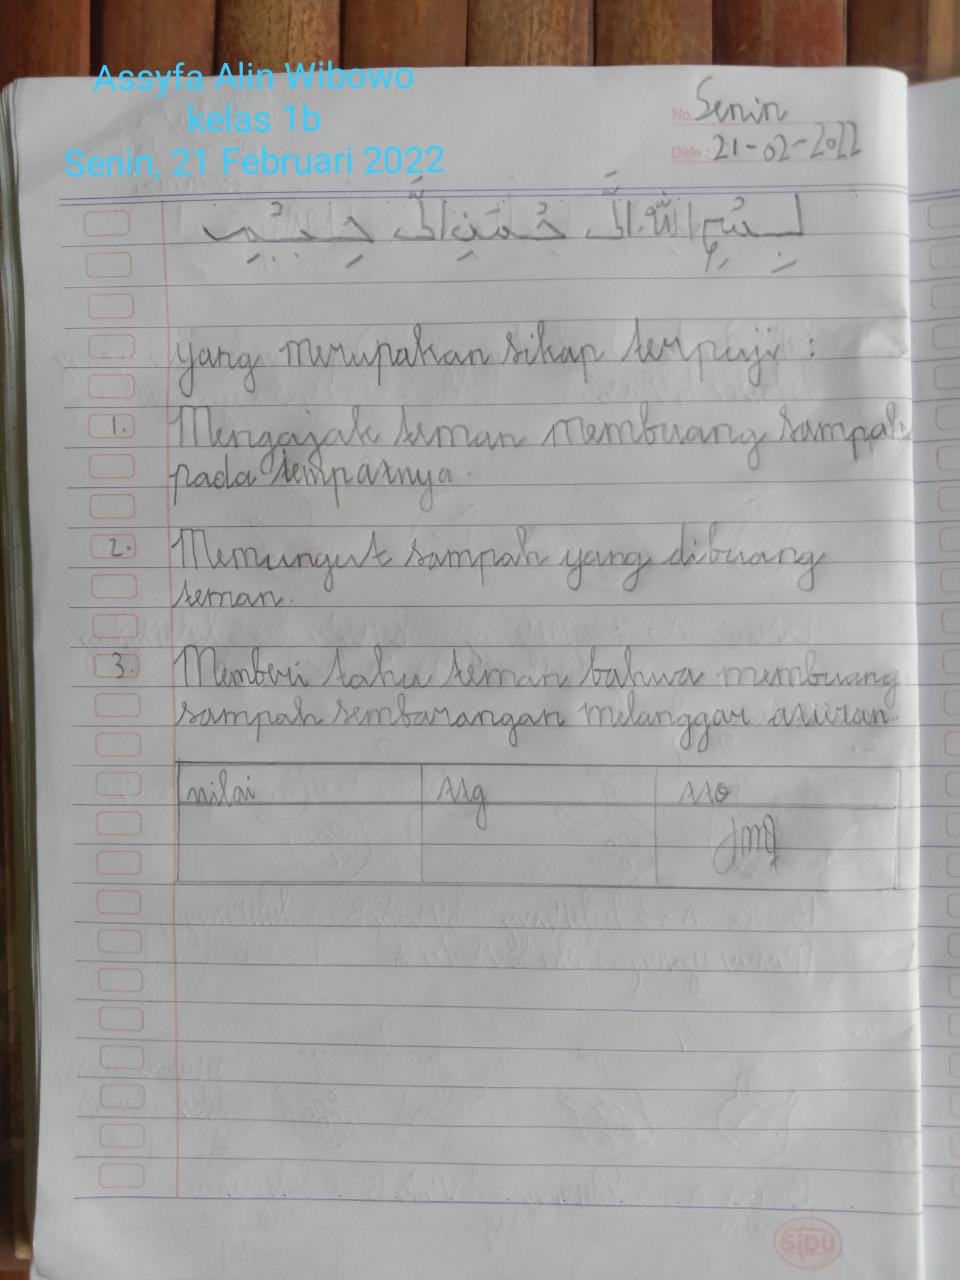 Assyfa Alin Wibowo
kelas 1b
Senin, 21 Februari 2022
No. Senin
Date : 21-02-2022
بِسْمِ اللّٰهِ الرَّحْمَنِ الرَّحِيْمِ
yang merupakan sikap terpuji :
1. Mengajak teman membuang sampah
pada tempatnya.
2. Memungut sampah yang dibuang
teman.
3. Memberi tahu teman bahwa membuang
sampah sembarangan melanggar aturan.
nilai ttg tto
SiDU